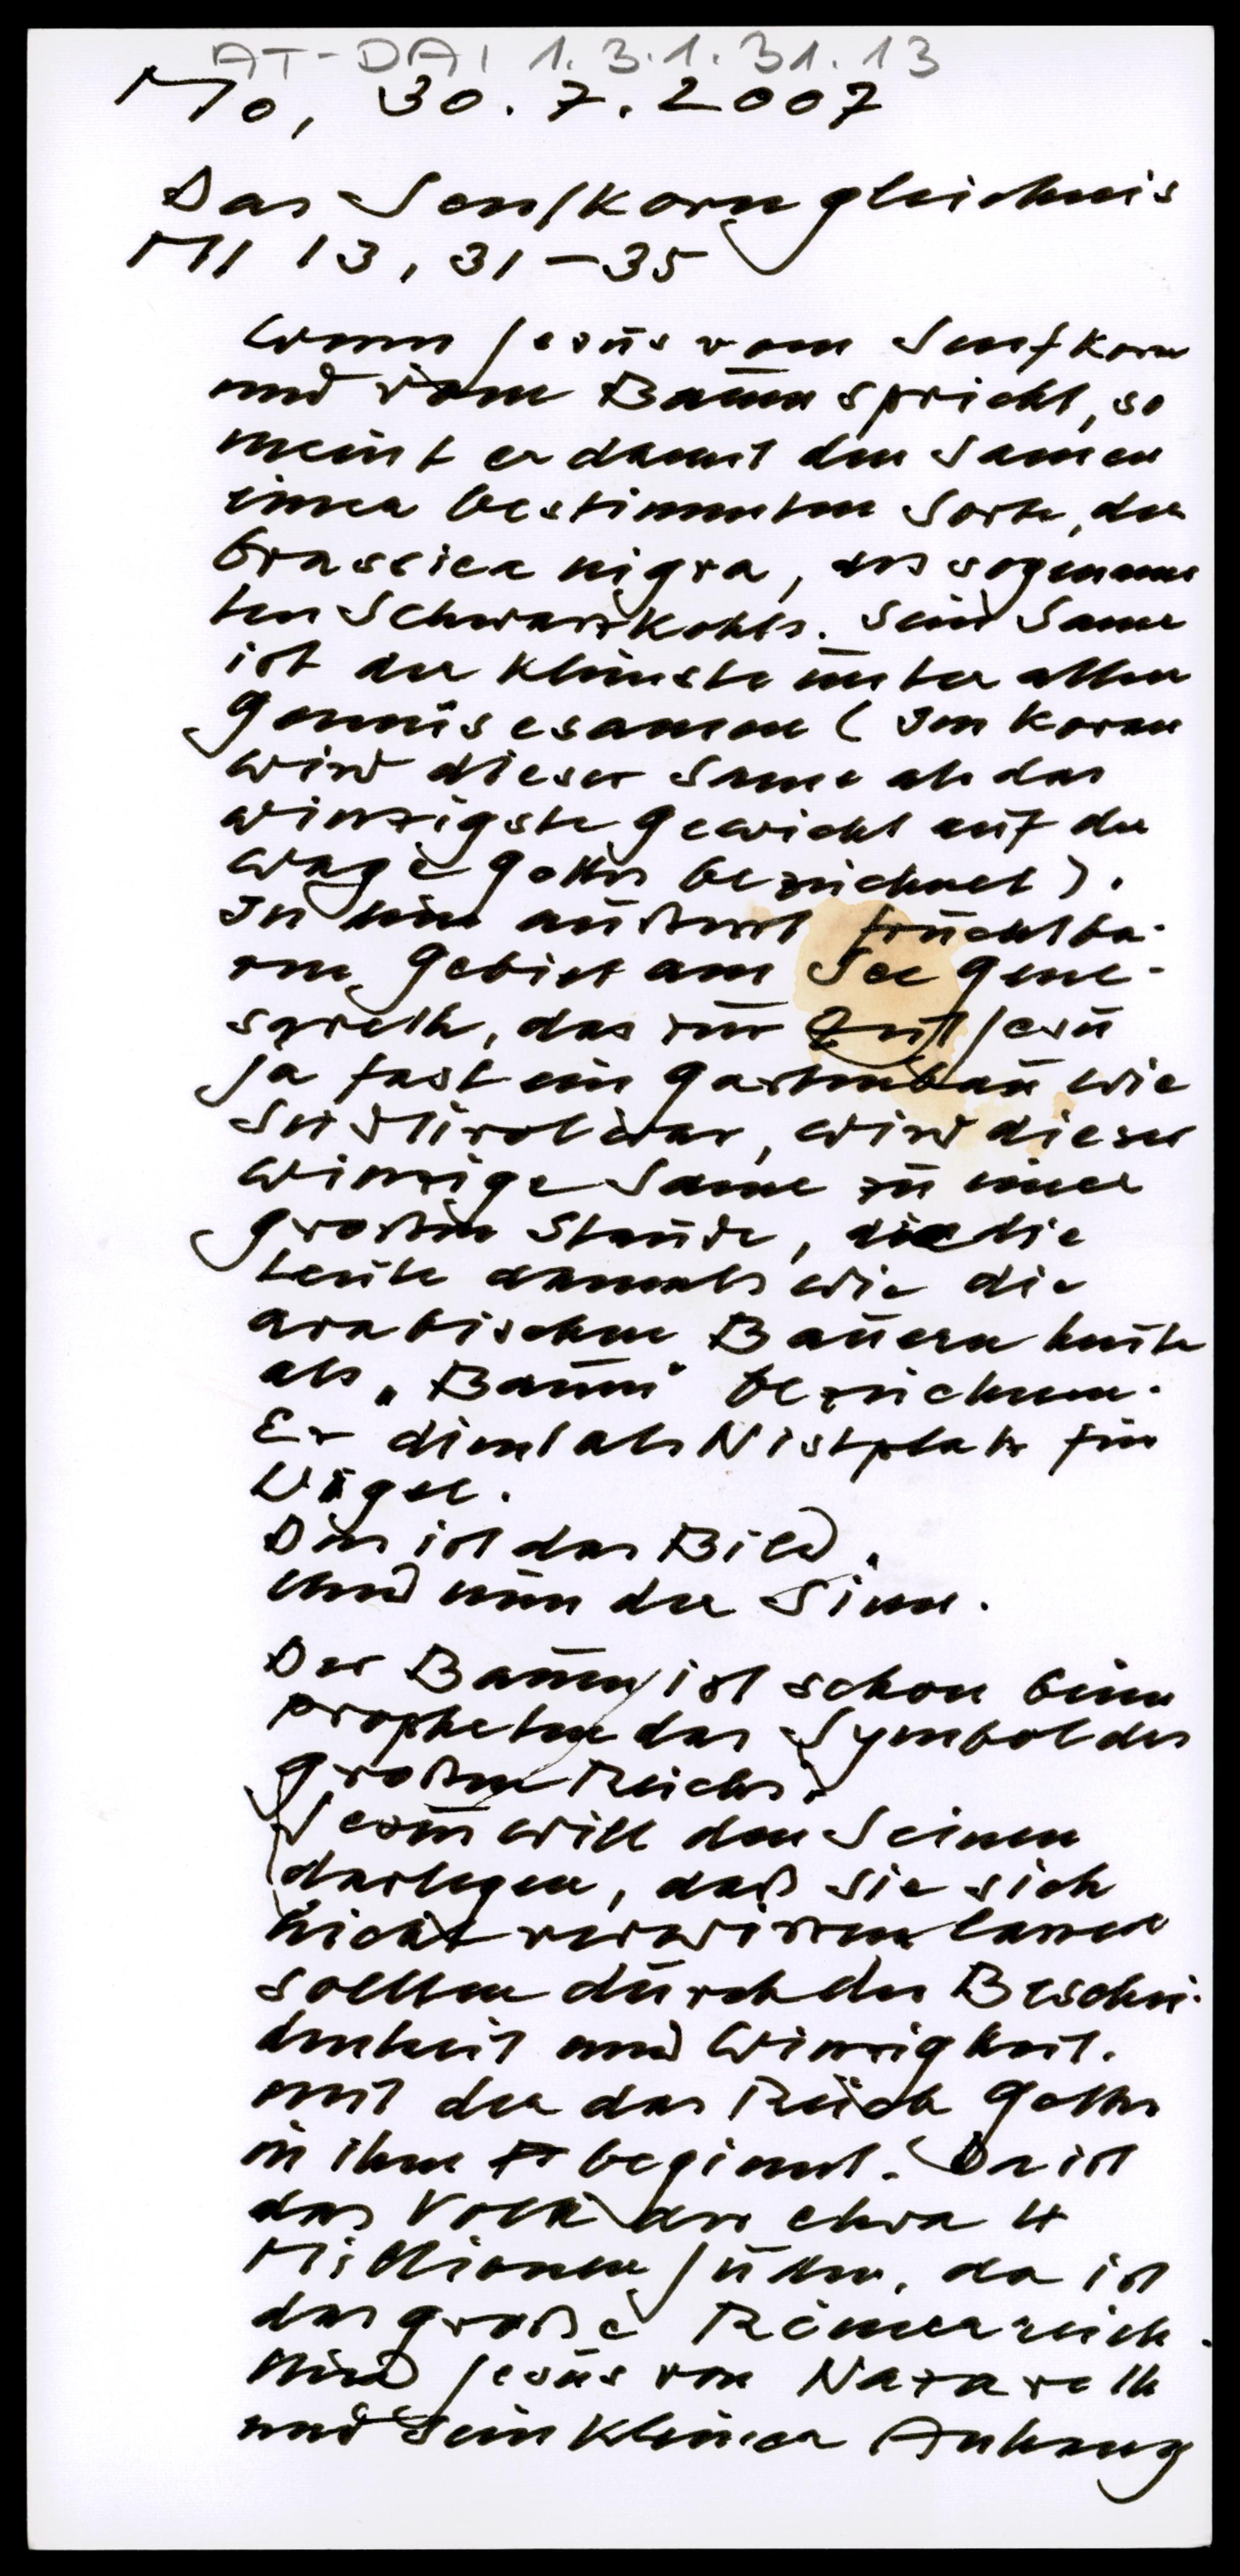 AT-DAI 1.3.1.31.13
Mo, 30.7.2007
Das Senfkorngleichnis
Mt 13, 31-35
Wenn Jesus vom Senfkorn
und vom Baum spricht, so
meint er damit den Samen
einer bestimmten Sorte, der
brassica nigra, des sogenann
ten Schwarzkohls. Sein Same
ist der kleinste unter allen
Gemüsesamen (Im Koran
wird dieser Same als das
winzigste Gewicht auf der
Wage Gottes bezeichnet).
In dem äußerst fruchtba-
ren Gebiet am See Gene-
sareth, das zur Zeit Jesu
ja fast ein Gartenbau wie
Südtirol war, wird dieser
winzige Same zu einer
großen Staude, die die
Leute damals wie die
arabischen Bauern heute
als "Baum" bezeichnen.
Er dient als Nistplatz für
Vögel.
Das ist das Bild.
Und nun der Sinn.
Der Baum ist schon beim
Propheten das Symbol des
großen Reichs.
Jesus will den Seinen
darlegen, daß sie sich
nicht verwirren lassen
sollten durch die Beschei-
denheit und Winzigkeit.
mit der das Reich Gottes
in ihm beginnt. Da ist
das Volk der etwa 4
Millionen Juden, da ist
das große Römerreich.
Und Jesus von Nazareth
und sein kleiner Anhang